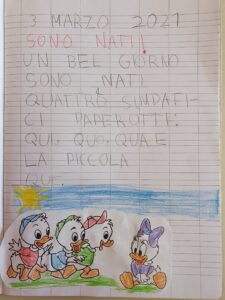 3 MARZO 2021
SONO NATI!
UN BEL GIORNO
SONO NATI
QUATTRO SIMPATI-
CI PAPEROTTI:
QUI, QUO, QUA E
LA PICCOLA
QUE.